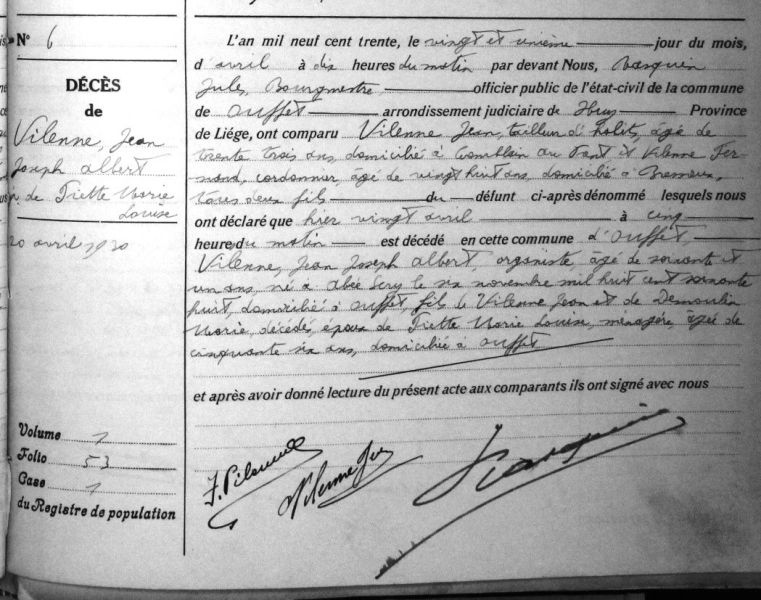 N° 6
DÉCÈS
de
Vilenne, Jean
Joseph Albert
de Tiette Marie
Louise
20 avril 1930
Volume 1
Folio 53
Case 1
du Registre de population
L'an mil neuf cent trente, le vingt et unième jour du mois,
d'avril à dix heures du matin par devant Nous, Basquin
Jules, Bourgmestre officier public de l'état-civil de la commune
de Ouffet arrondissement judiciaire de Huy Province
de Liége, ont comparu Vilenne Jean, tailleur d'habits, âgé de
trente trois ans, domicilié à Comblain au Pont et Vilenne Fer
nand, cordonnier, âgé de vingt huit ans, domicilié à Bressoux,
tous deux fils du défunt ci-après dénommé lesquels nous
ont déclaré que hier vingt avril à cinq
heure du matin est décédé en cette commune d'Ouffet
Vilenne, Jean Joseph Albert, organiste, âgé de soixante et
un ans, né à Abée Scry le six novembre mil huit cent soixante
huit, domicilié à Ouffet, fils de Vilenne Jean et de Demoulin
Marie, décédés époux de Tiette Marie Louise, ménagère âgée de
cinquante six ans, domiciliée à Ouffet
et après avoir donné lecture du présent acte aux comparants ils ont signé avec nous
F. Vilenne
Vilenne Jean